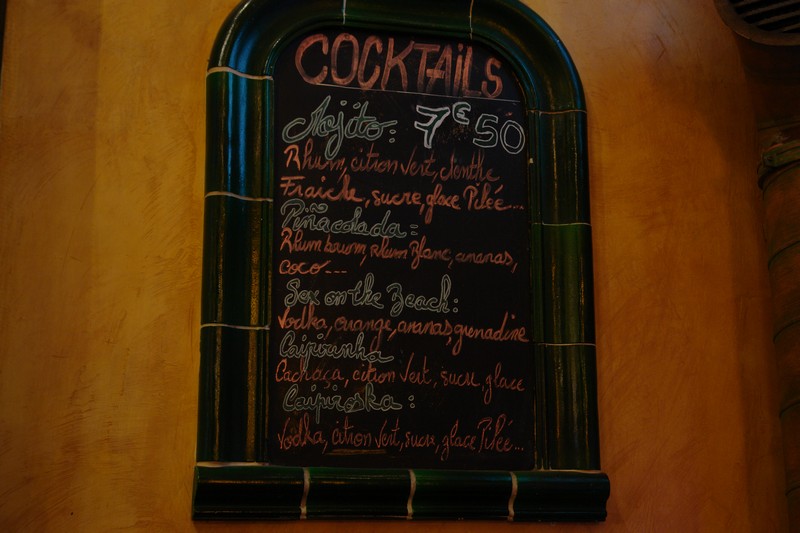 COCKTAiLS
Mojito: 7€50
Rhum, citron vert, menthe
Fraiche, sucre, glace Pilée...
Piñacolada:
Rhum brun, rhum Blanc, ananas,
coco---
Sex on the Beach:
Vodka, orange, ananas, grenadine
Caipirinha
Cachaça, citron vert, sucre glace
Caipiroska:
Vodka, citron vert, sucre, glace Pilée...